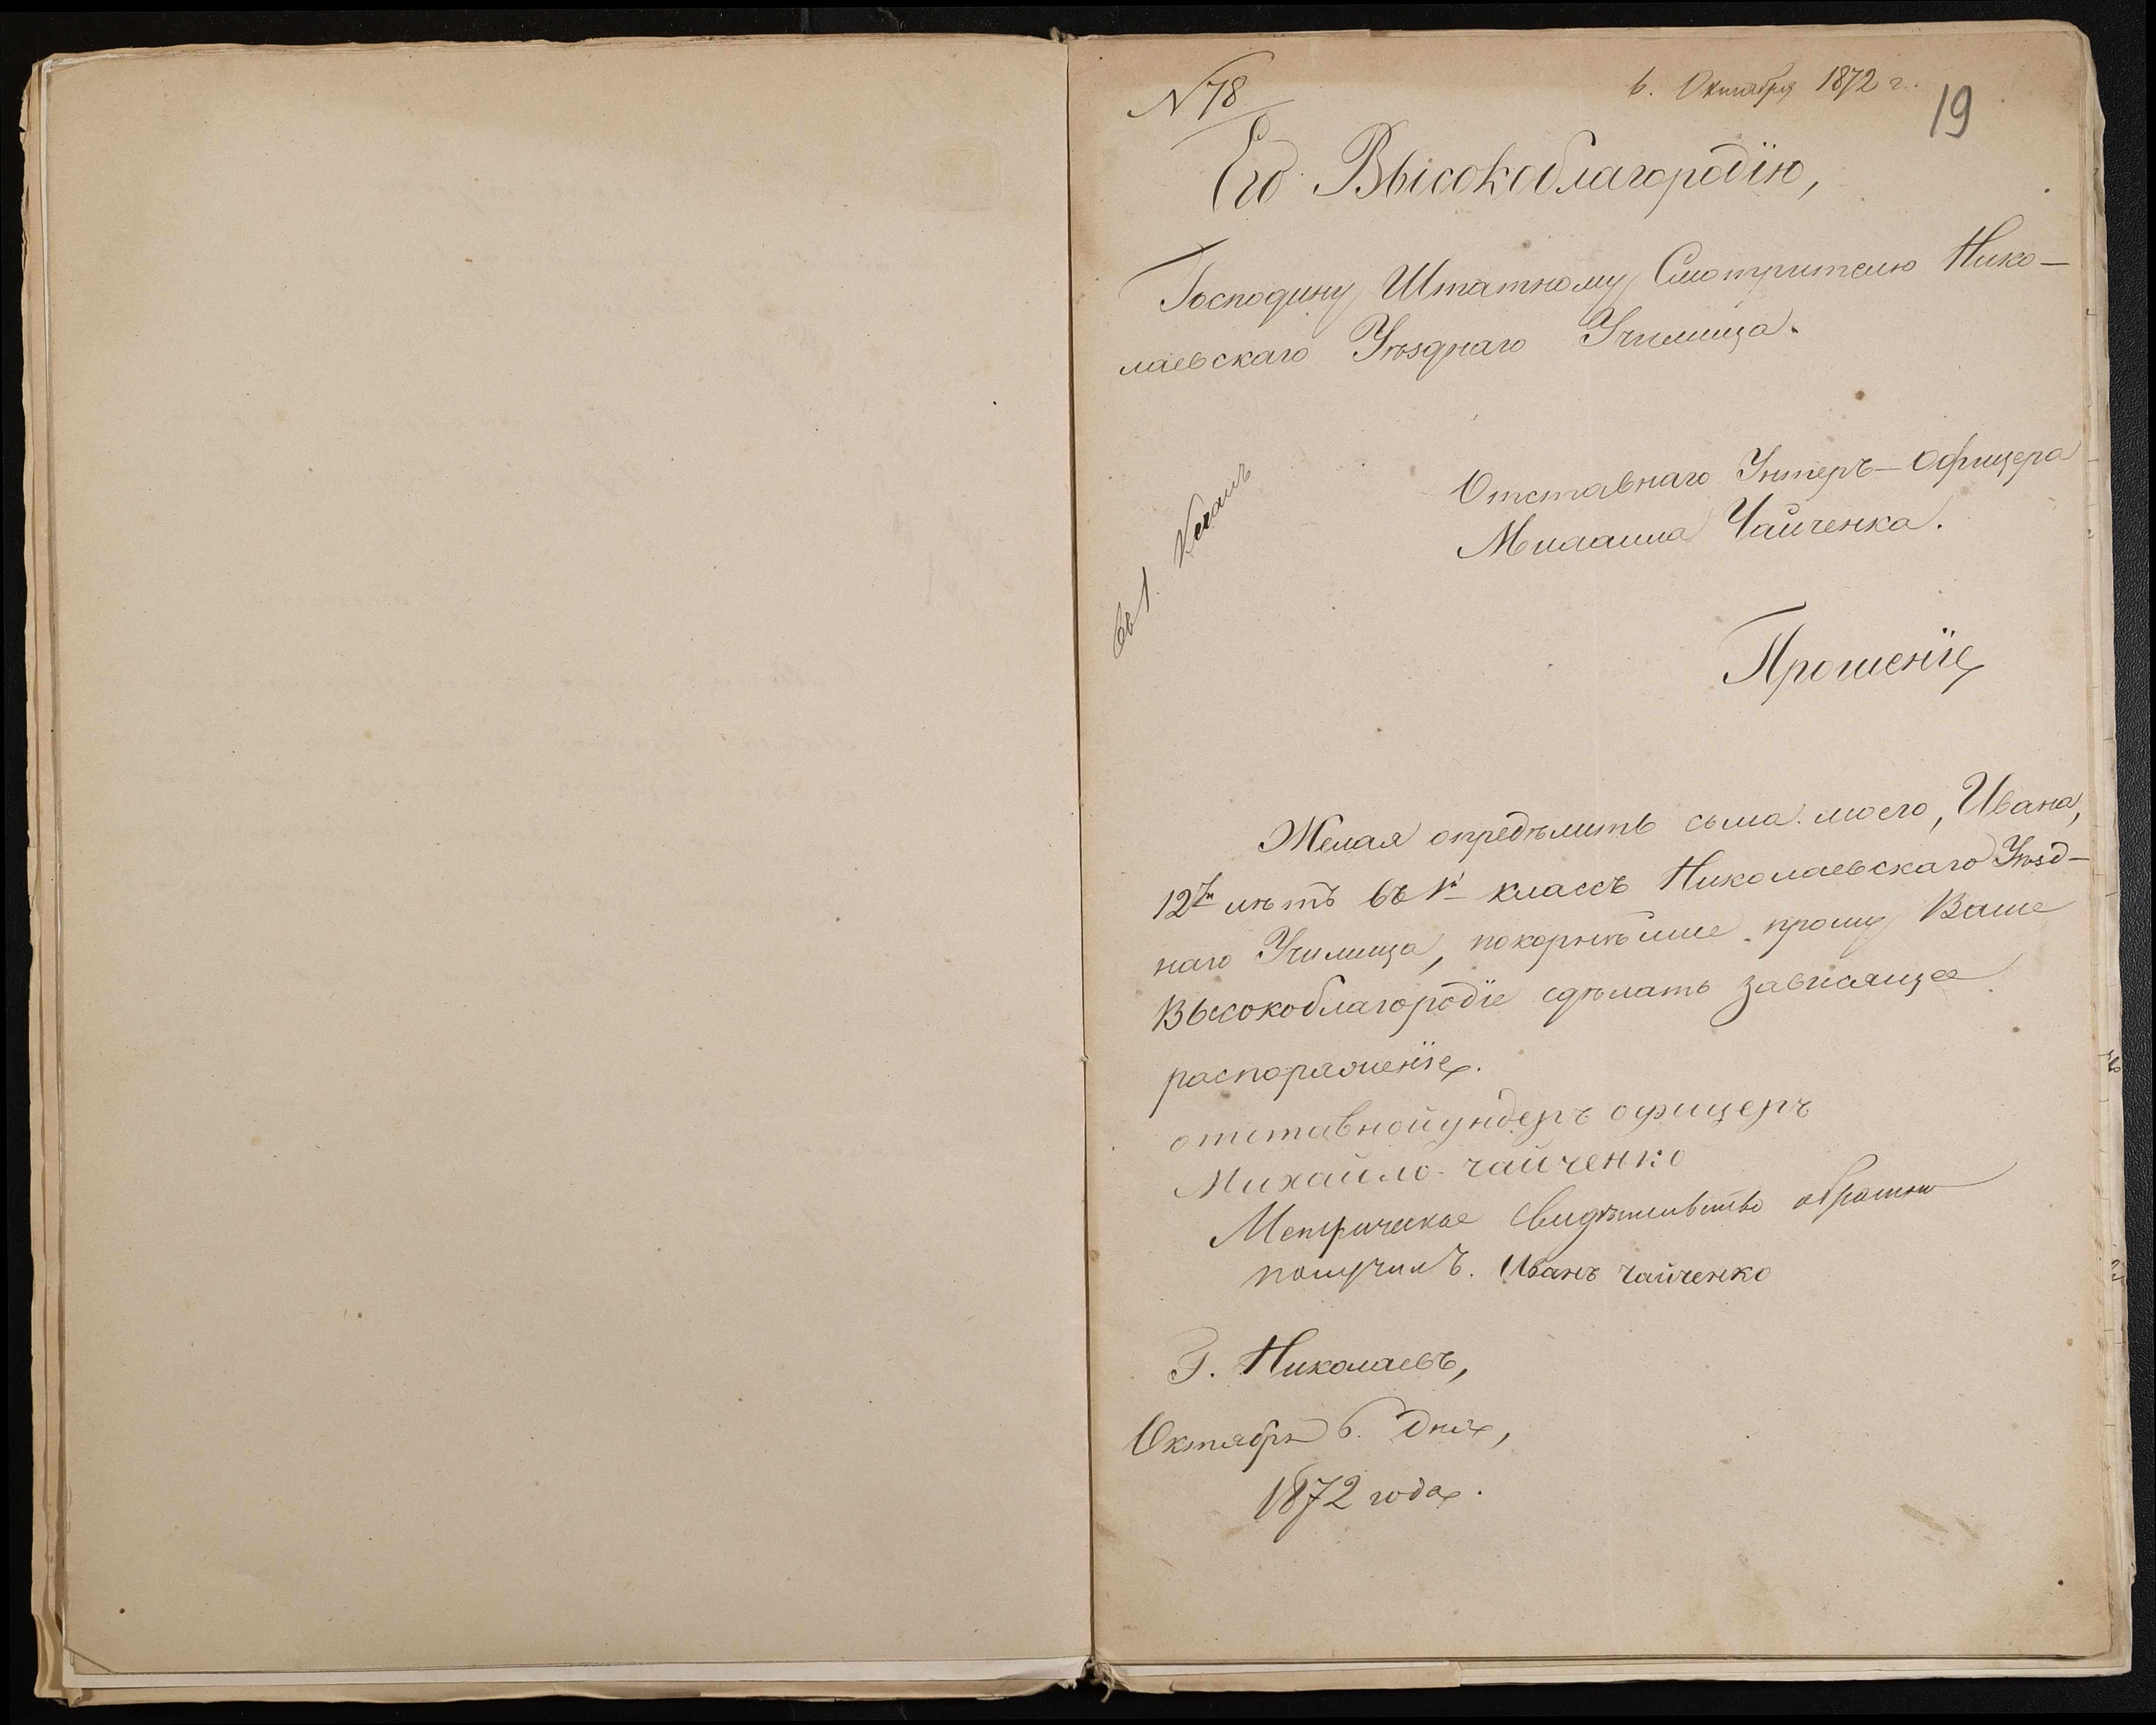 N 78
6. Октября 1872 г.
19
Его Высокоблагородію,
Господину Штатному Смотрителю Нико-
лаевскаго Уѣзднаго Училища.
Отставнаго Унтеръ-Офицера
Михаила Чайченка.
въ 1. классъ
Прошеніе
Желая опредѣлить сына моего, Ивана,
12ти лѣтъ въ 1й классъ Николаевскаго Уѣзд-
наго Училища, покорнѣйше прошу Ваше
Высокоблагородіе сдѣлать зависящее
распоряженіе.
отставной ундеръ офицеръ
Михайло чайченко
Метрическое свидѣтельство обратно
получилъ. Иванъ Чайченко
Г. Николаевъ,
Октября 6. дня,
1872 года.